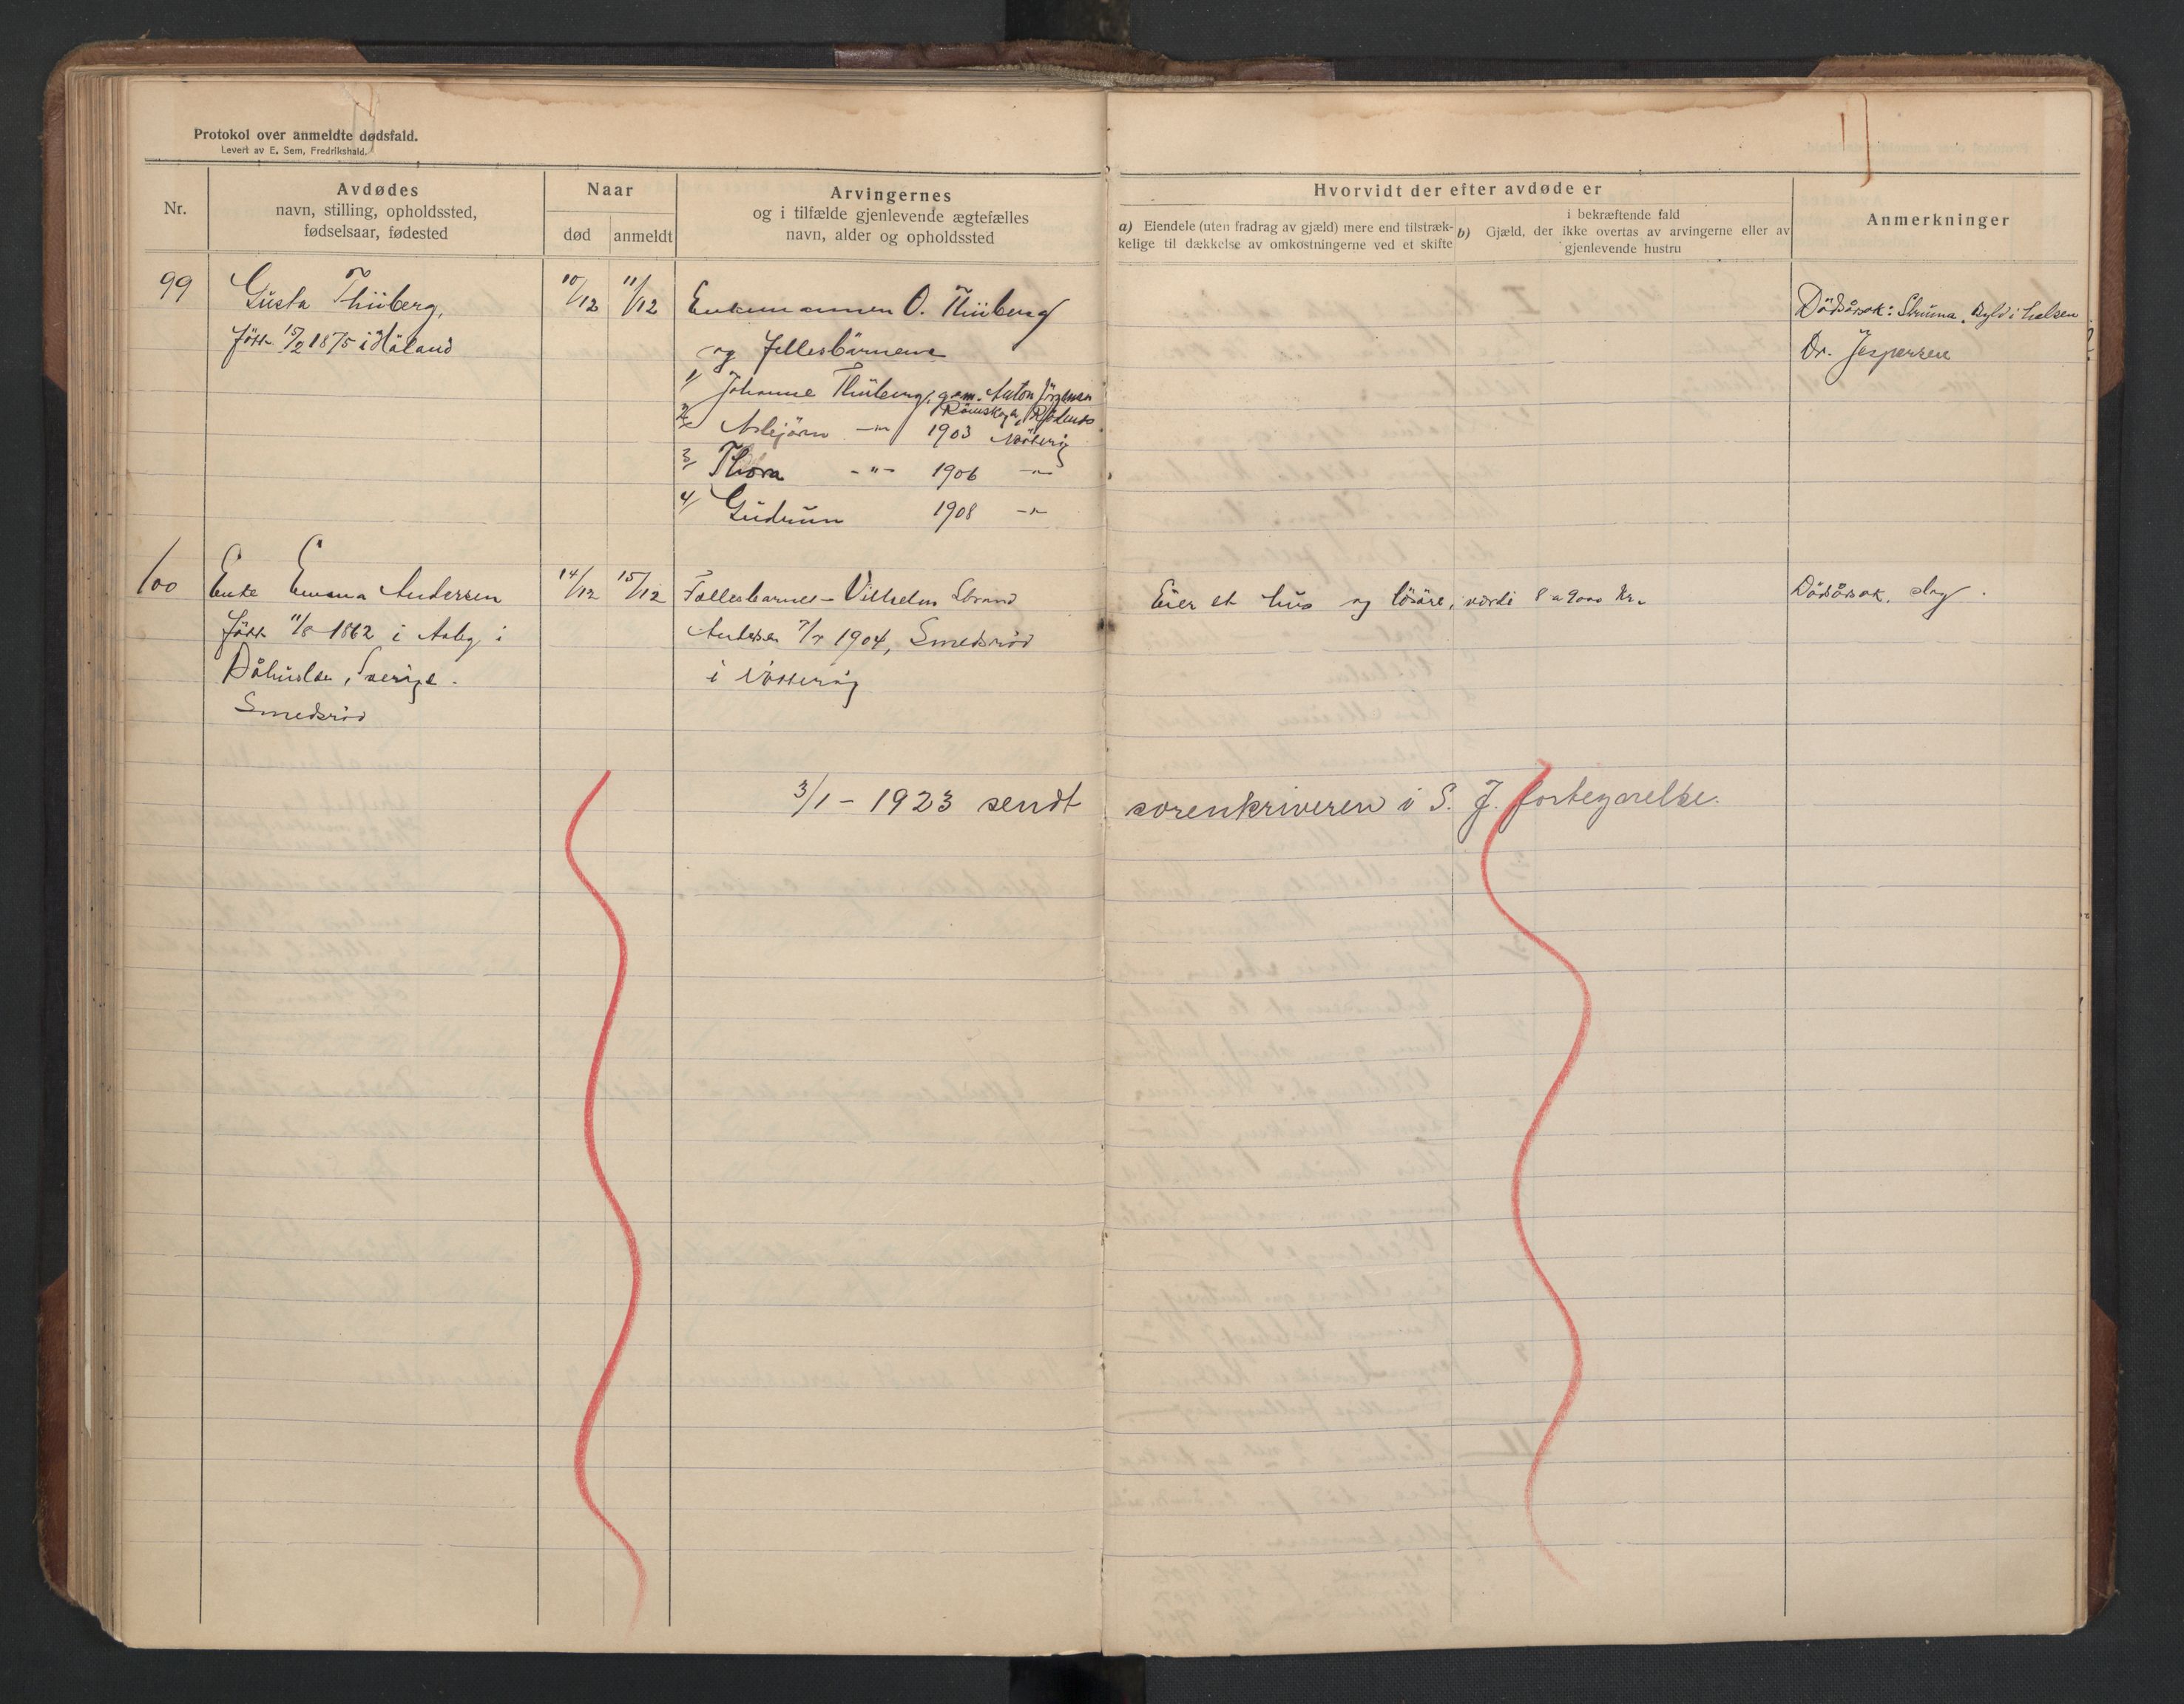 Protokol over anmeldte dødsfald.
Levert av E. Sem, Fredrikshald.
Nr.
Avdødes
navn, stilling, opholdssted,
fødselsaar, fødested
Naar
død
anmeldt
Arvingernes
og i tilfælde gjenlevende ægtefælles
navn, alder og opholdssted
Hvorvidt der efter avdøde er
a) Eiendele (uten fradrag av gjæld) mere end tilstræk-
kelige til dækkelse av omkostningerne ved et skifte
i bekræftende fald
b) Gjæld, der ikke overtas av arvingerne eller av
gjenlevende hustru
Anmerkninger
99
Gusta Thüberg,
født 15/2 1875 i Höland
10/12
11/12
Enkemannen O. Thüberg
og fellesbarnene
1/ Johanne Thüberg, gem. Anton Jörgensen
Römskog, Rödenes
2/ Asbjörn -"- 1903 Nötterö
3/ Thora -"- 1906 -"-
4/ Gudrun 1908 -"-
Dödsårsak: Struma, Byld i halsen
Dr. Jespersen
100
Enke Emma Andersen
født 11/8 1862 i Aaby i
Båhuslen, Sverige.
Smedsröd
14/12
15/12
Fællesbarnet - Vilhelm Strand
Andersen 7/8 1904, Smedsröd
i Nötterö
Eier et hus og lösöre, værdi 8 a 9000 kr.
Dödsårsak. Slag.
3/1 - 1923 sendt sorenkriveren i S. J. fortegnelse.